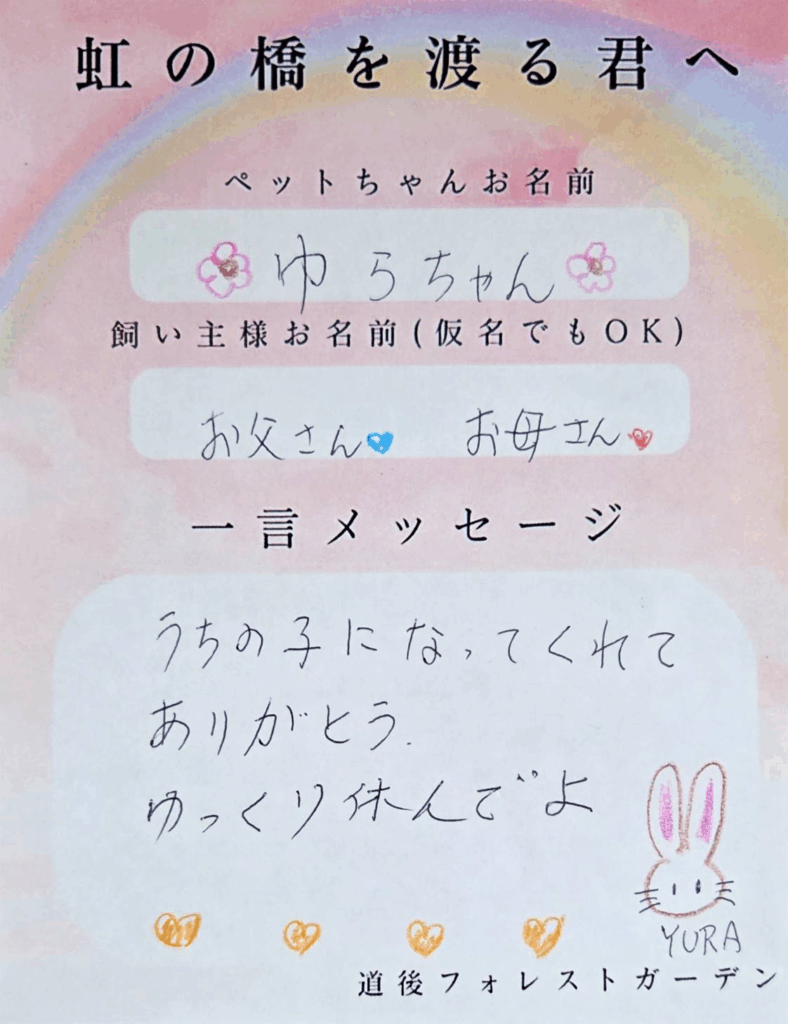 虹の橋を渡る君へ
ペットちゃんお名前
ゆらちゃん
飼い主様お名前(仮名でもOK)
お父さん お母さん
一言メッセージ
うちの子になってくれて
ありがとう.
ゆっくり休んでよ
YURA
道後フォレストガーデン